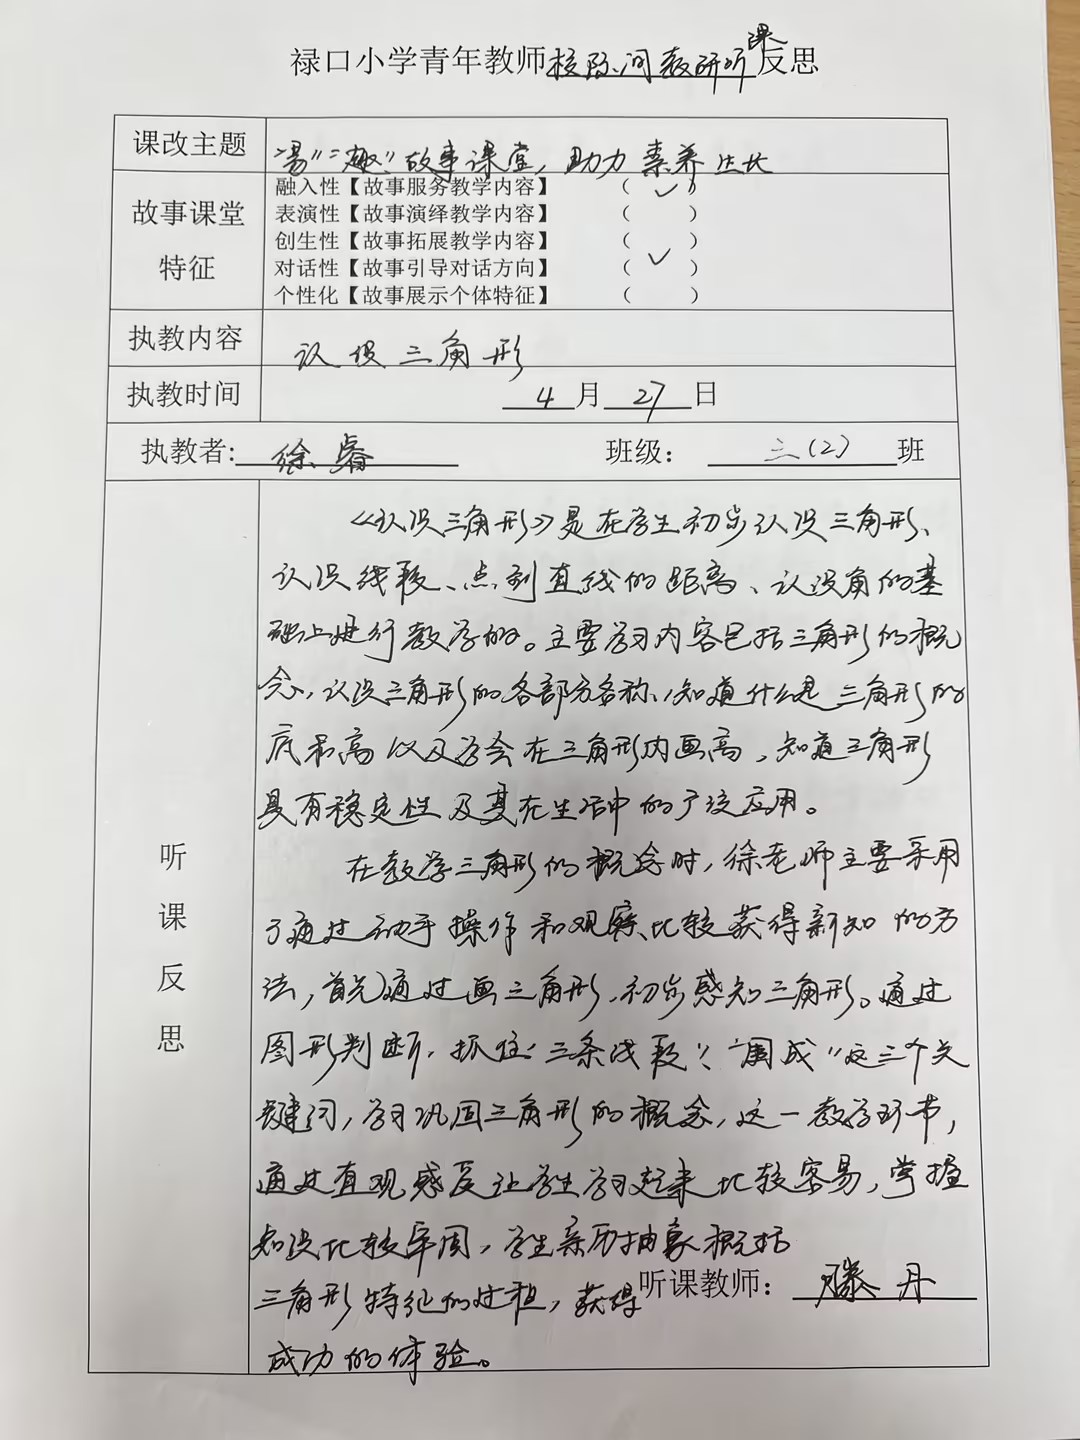 禄口小学青年教师校际间教研听课反思
课改主题 “易”“趣”故事课堂，助力素养生长
故事课堂特征
融入性【故事服务教学内容】 （ ✓ ）
表演性【故事演绎教学内容】 （ ）
创生性【故事拓展教学内容】 （ ）
对话性【故事引导对话方向】 （ ✓ ）
个性化【故事展示个体特征】 （ ）
执教内容 认识三角形
执教时间 4月27日
执教者：徐睿 班级：三(2)班
听课反思
《认识三角形》是在学生初步认识三角形、
认识线段、点到直线的距离、认识角的基
础上进行教学的。主要学习内容包括三角形的概
念，认识三角形的各部分名称，知道什么是三角形的
底和高以及学会在三角形内画高，知道三角形
具有稳定性及其在生活中的广泛应用。
在教学三角形的概念时，徐老师主要采用
了通过动手操作和观察、比较获得新知的方
法，首先通过画三角形，初步感知三角形。通过
图形判断，抓住“三条线段”、“围成”这三个关
键词，学习巩固三角形的概念，这一教学环节，
通过直观感受让学生学习起来比较容易，掌握
知识比较牢固，学生亲历抽象概括
三角形特征的过程，获得
成功的体验。
听课教师：滕丹